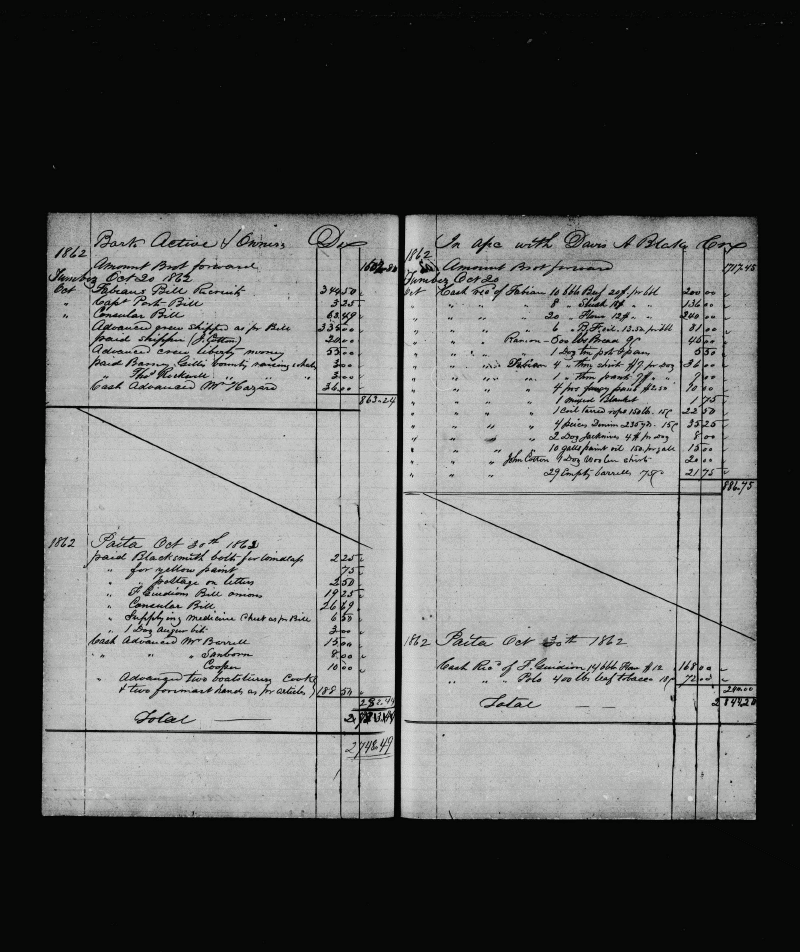 Bark Active & Owners Dr
1862
Amount Brot forward
Tumbez Oct 20 1862
Oct Fabians Bill Recruits 344.50
" Capt Port Bill 3.25
" Consular Bill 63.49
Advanced crew shipped as pr Bill 335.00
paid shipper (J. Cotton) 20.00
Advanced crew liberty money 55.00
paid bounty raising whale 3.00
" Thos Rockwell " " " 3.00
Cash Advanced Mr Hazard 36.00
863.24
1862 Paita Oct 30th 1862
paid Blacksmith bolts for windlass 2.25
" for yellow paint 75
" " postage on letters 2.50
" F. Guidions Bill onions 19.25
" Consular Bill 26.69
" Supplying medicine Chest as pr Bill 6.50
" 1 Doz Augur bits 3.00
Cash Advanced Mr Barrell 15.00
" " " Sanborn 8.00
Cooper 10.00
" Advanced two boatsteerers Cook
& two foremast hands as pr articles) 188.50
282.44
Total
2748.49
In apc with Davis A Blake Cr
1862
Amount Brot forward 1717.45
Tumbez Oct 20
Oct Cash recd of Fabian 10 bbls Beef 20$ pr bbl 200.00
" " " " 8 " 17$ " " 136.00
" " " " 20 " Flour 12$ " 240.00
" " " " 6 " 13.50 pr bbl 81.00
" " " Ranson 500 lbs Bread 9c 45.00
" " " " 1 Doz tin pots & pans 5.50
" " " Fabian 4 " thin shirts $9 pr Doz 36.00
" " " " 1 " thin pants 9$ " " 9.00
" " " " 4 prs pants $2.50 10.00
" " " " 1 Blanket 1.75
" " " " 1 Coil tared rope 150 lb. 15c 22.50
" " " " 4 peices Denim 235 yd. 15c 35.25
" " " " 2 Doz Jacknives 4$ pr Doz 8.00
" " " " 10 galls paint oil 150 pr gall 15.00
" " " John Cotton Doz Woolen shirts 20.00
" " " 29 Empty barrells 75c 21.75
886.75
1862 Paita Oct 30th 1862
Cash Recd of F. Guidion 14 bbls Flour $12 168.00
" " " Polo 400 lbs leaf tobacco 18c 72.00
240.00
Total 2844.20